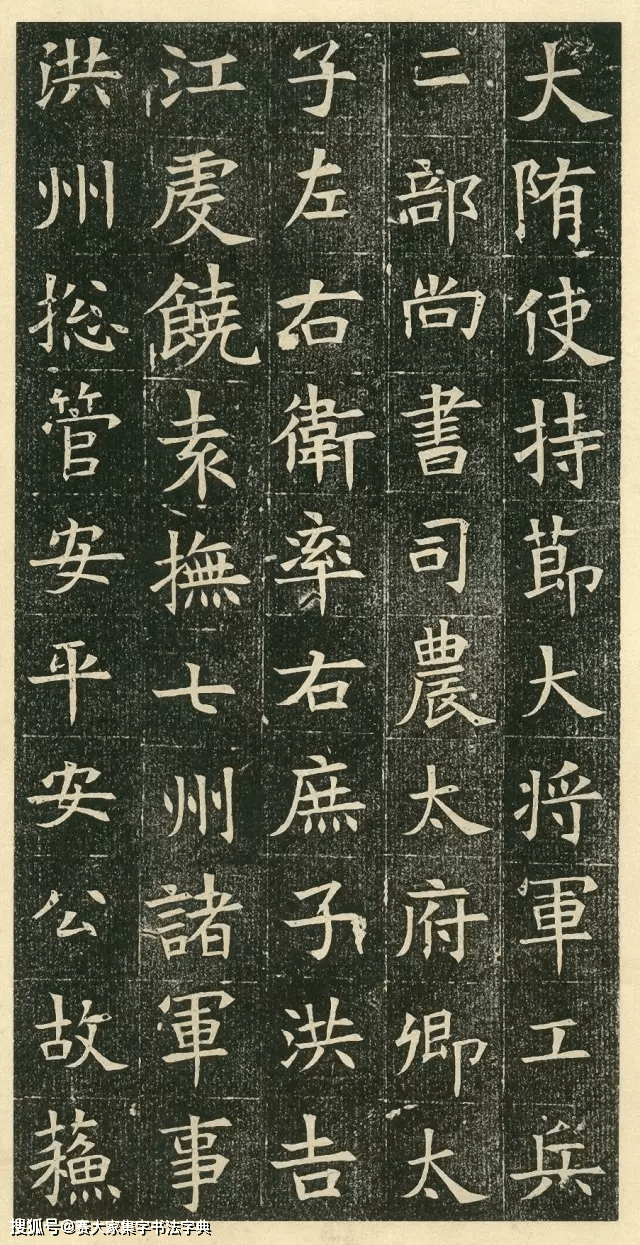 大陏使持莭大将軍工兵
二部尚書司農太府卿太
子左右衛率右庶子洪吉
江虔饒袁撫七州諸軍事
洪州捴管安平安公故蘓
搜狐号@赛大家集字书法字典